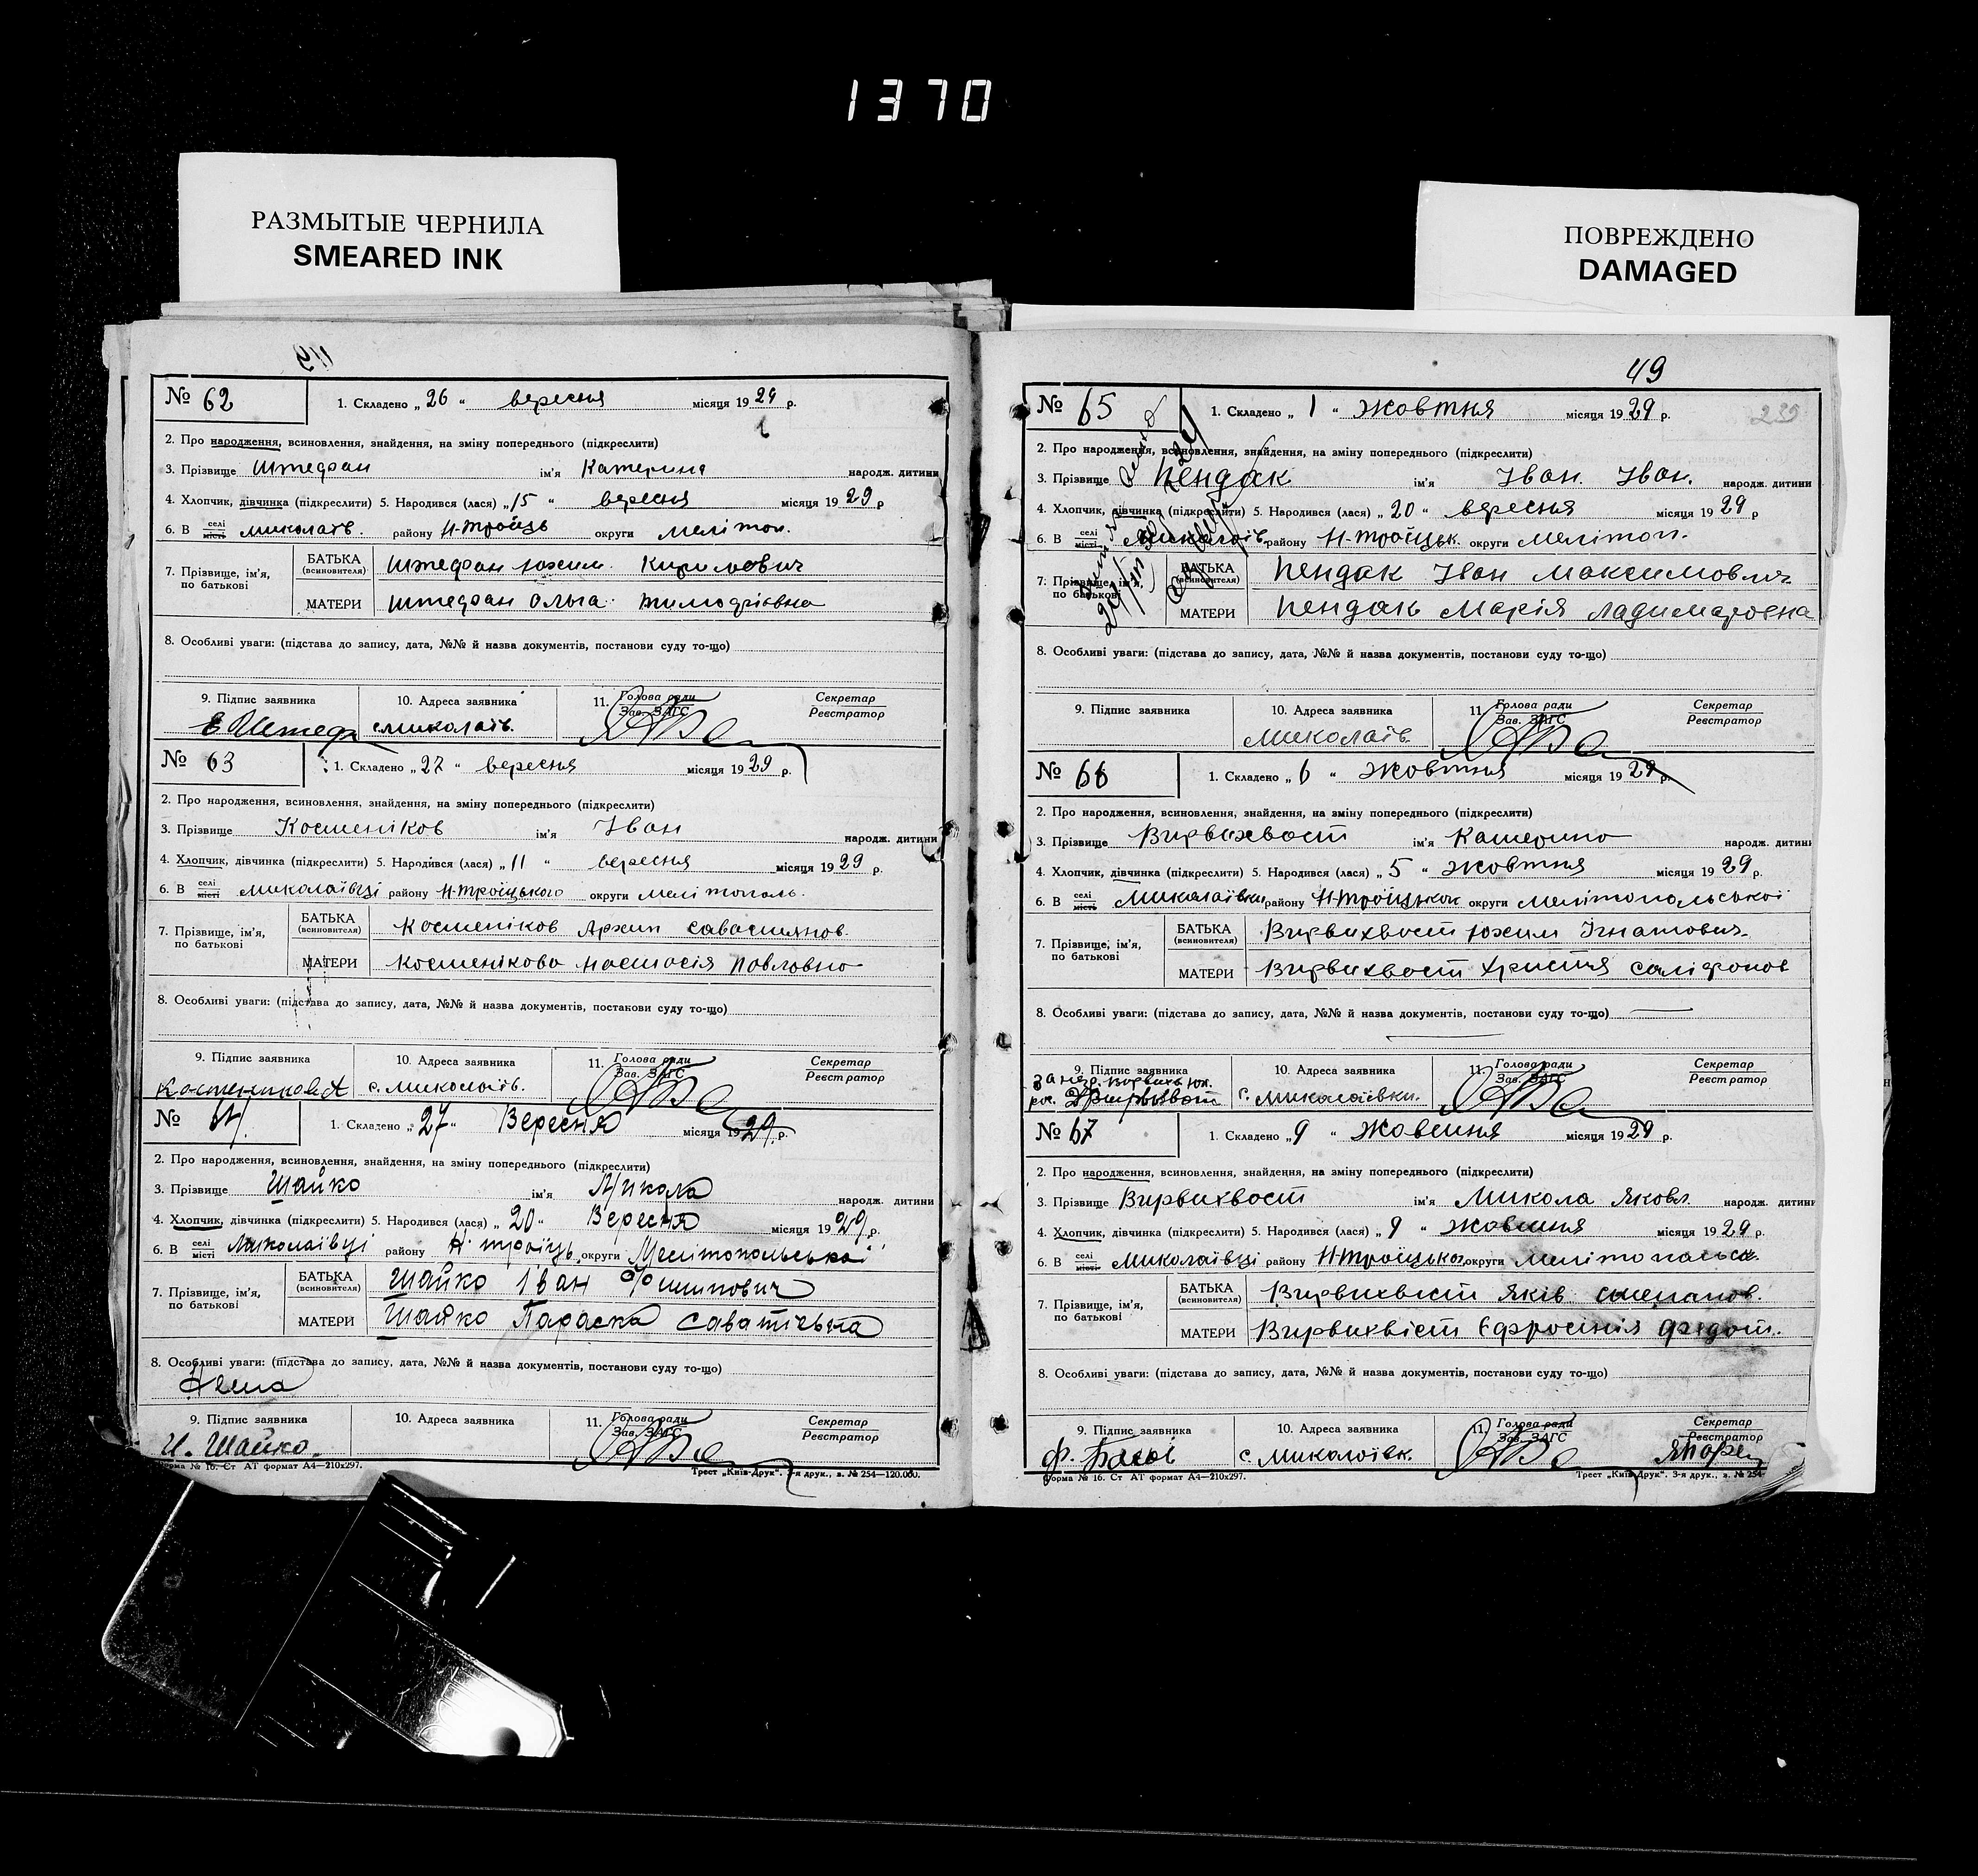 1370
РАЗМЫТЫЕ ЧЕРНИЛА
SMEARED INK
ПОВРЕЖДЕНО
DAMAGED
№ 62
1. Складено „ 26 “ вересня місяця 1929 р.
2. Про народження, всиновлення, знайдення, на зміну попереднього (підкреслити)
3. Прізвище Штефан ім'я Катерина народж. дитини
4. Хлопчик, дівчинка (підкреслити) 5. Народився (лася) „ 15 “ вересня місяця 1929 р
6. В селі місті Миколаїв. району Н-Троїць округи Мелітоп.
7. Прізвище, ім'я, по батькові
БАТЬКА (всиновителя) Штефан Юхим Кирилович
МАТЕРИ Штефан Ольга Тимофіївна
8. Особливі уваги: (підстава до запису, дата, №№ й назва документів, постанови суду то-що)
9. Підпис заявника
10. Адреса заявника
11. Голова ради Зав. ЗАГС
Секретар Реєстратор
Е Штеф
Миколаїв.
№ 63
1. Складено „ 27 “ вересня місяця 1929 р.
2. Про народження, всиновлення, знайдення, на зміну попереднього (підкреслити)
3. Прізвище Костеніков ім'я Іван народж. дитини
4. Хлопчик, дівчинка (підкреслити) 5. Народився (лася) „ 11 “ вересня місяця 1929 р.
6. В селі місті Миколаївці району Н-Троїцького округи Мелітополь.
7. Прізвище, ім'я, по батькові
БАТЬКА (всиновителя) Костеніков Архип Савостиянов.
МАТЕРИ Костенікова Настасія Павловна
8. Особливі уваги: (підстава до запису, дата, №№ й назва документів, постанови суду то-що)
9. Підпис заявника
10. Адреса заявника
11. Голова ради Зав. ЗАГС
Секретар Реєстратор
Костеников А
с. Миколаїв.
№
1. Складено „ 27 “ Вересня місяця 1929 р.
2. Про народження, всиновлення, знайдення, на зміну попереднього (підкреслити)
3. Прізвище Шайко ім'я Микола народж. дитини
4. Хлопчик, дівчинка (підкреслити) 5. Народився (лася) „ 20 “ Вересня місяця 1929 р.
6. В селі місті Миколаївці району Н. Троїць. округи Мелітопольської
7. Прізвище, ім'я, по батькові
БАТЬКА (всиновителя) Шайко Іван
МАТЕРИ Шайко Параска
8. Особливі уваги: (підстава до запису, дата, №№ й назва документів, постанови суду то-що)
Нема
9. Підпис заявника
10. Адреса заявника
11. Голова ради Зав. ЗАГС
Секретар Реєстратор
И. Шайко.
Форма № 16. Ст АТ формат А4—210х297.
Трест „Київ-Друк“. 3-я друк., з. № 254—120.000.
49
239
№ 65
1. Складено „ 1 “ Жовтня місяця 1929 р.
2. Про народження, всиновлення, знайдення, на зміну попереднього (підкреслити)
3. Прізвище Пендак ім'я Іван. Іван. народж. дитини
4. Хлопчик, дівчинка (підкреслити) 5. Народився (лася) „ 20 “ вересня місяця 1929 р
6. В селі місті Миколаїв. району Н-Троїцьк. округи Мелітоп.
7. Прізвище, ім'я, по батькові
БАТЬКА (всиновителя) Пендак Іван Максимович
МАТЕРИ Пендак Марія Ладимаровна
8. Особливі уваги: (підстава до запису, дата, №№ й назва документів, постанови суду то-що)
9. Підпис заявника
10. Адреса заявника
11. Голова ради Зав. ЗАГС
Секретар Реєстратор
Миколаїв.
№ 66
1. Складено „ 6 “ Жовтня місяця 1929 р.
2. Про народження, всиновлення, знайдення, на зміну попереднього (підкреслити)
3. Прізвище Вирвихвост ім'я Катерино народж. дитини
4. Хлопчик, дівчинка (підкреслити) 5. Народився (лася) „ 5 “ Жовтня місяця 1929 р.
6. В селі місті Миколаївки району Н-Троїцької округи Мелітопольської
7. Прізвище, ім'я, по батькові
БАТЬКА (всиновителя) Вирвихвост Юхим Ігнатович.
МАТЕРИ Вирвихвост Христя Саліфонов
8. Особливі уваги: (підстава до запису, дата, №№ й назва документів, постанови суду то-що)
9. Підпис заявника
10. Адреса заявника
11. Голова ради Зав. ЗАГС
Секретар Реєстратор
с. Миколаївки.
№ 67
1. Складено „ 9 “ Жовтня місяця 1929 р.
2. Про народження, всиновлення, знайдення, на зміну попереднього (підкреслити)
3. Прізвище Вирвихвост ім'я Микола Яковл. народж. дитини
4. Хлопчик, дівчинка (підкреслити) 5. Народився (лася) „ 9 “ Жовтня місяця 1929 р.
6. В селі місті Миколаївці району Н-Троїцьког. округи Мелітопольск.
7. Прізвище, ім'я, по батькові
БАТЬКА (всиновителя) Вирвихвіст Яків Степанов.
МАТЕРИ Вирвихвіст Єфросинія Федот.
8. Особливі уваги: (підстава до запису, дата, №№ й назва документів, постанови суду то-що)
9. Підпис заявника
10. Адреса заявника
11. Голова ради Зав. ЗАГС
Секретар Реєстратор
с. Миколаївк.
Форма № 16. Ст АТ формат А4—210х297.
Трест „Київ-Друк“. 3-я друк., з. № 254